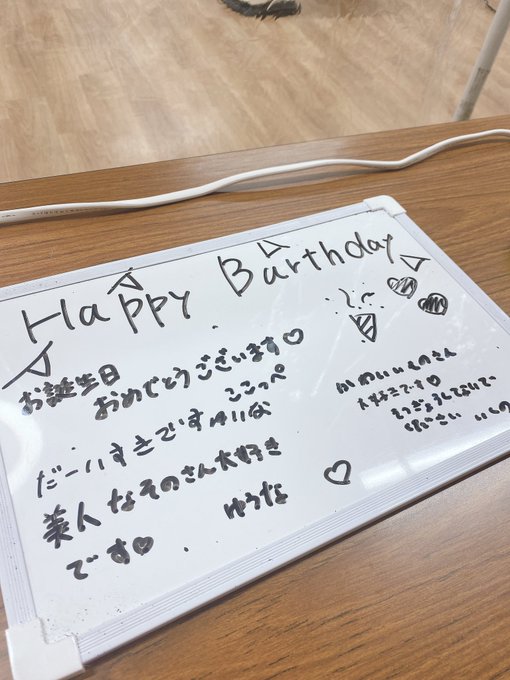 Happy Barthday
お誕生日
おめでとうございます♡
ここっぺ
だーいすきです
美人なそのさん大好き
です♡
ゆうな
かわいいそのさん
大好きです♡